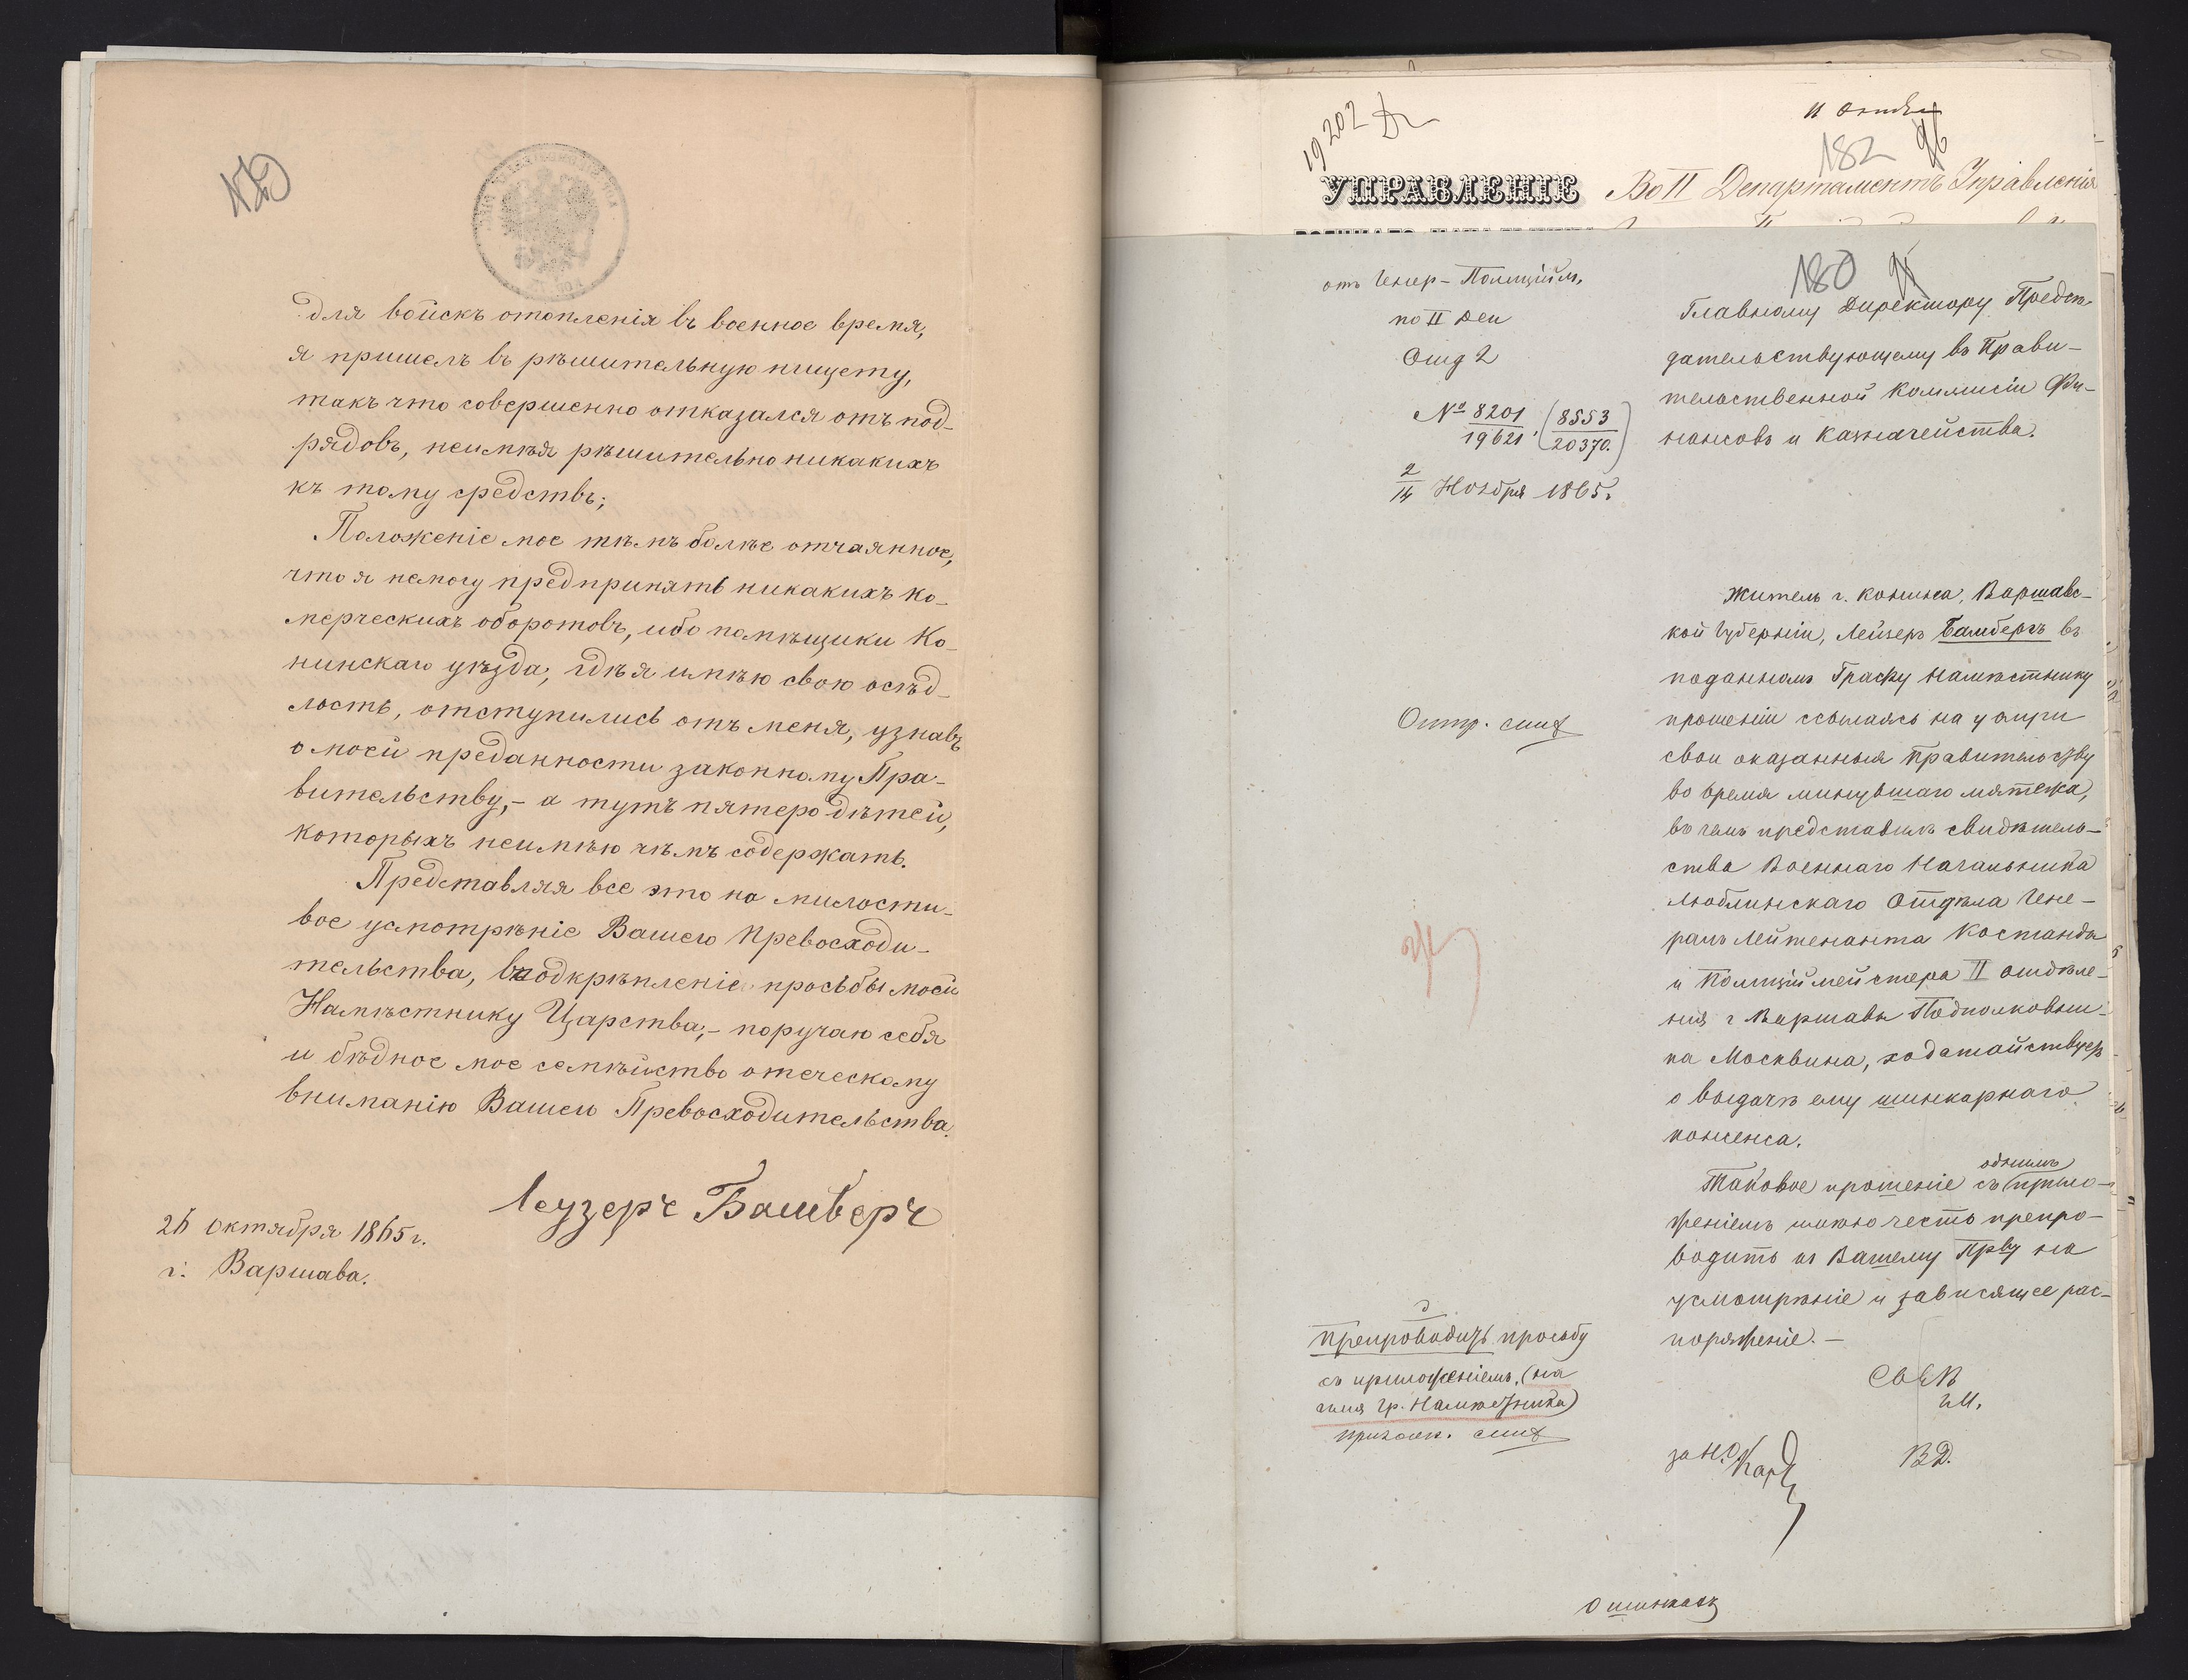 для войскъ отопленія въ военное время,
я пришелъ въ рѣшительную нищету,
такъ что совершенно отказался отъ под-
рядовъ, неимѣя рѣшительно никакихъ
къ тому средствъ;
Положеніе мое тѣмъ болѣе отчаянное,
что я немогу предпринять никакихъ ко-
мерческихъ оборотовъ, ибо помѣщики Ко-
нинскаго уѣзда, гдѣ я имѣю свою осѣд-
лость, отступились отъ меня, узнавъ
о моей преданности законному Пра-
вительству,- а тутъ пятеро дѣтей,
которыхъ неимѣю чѣмъ содержать.
Представляя все это на милости-
вое усмотрѣніе Вашего Превосходи-
тельства, въ подкрѣпленіе просьбы моей
Намѣстнику Царства,- поручаю себя
и бѣдное мое семѣйство отеческому
вниманію Вашего Превосходительства.
Леузерг Бамберг
26 Октября 1865 г.
г. Варшава.
19202
182 96
УПРАВЛЕНІЕ
Во II Департаментъ Управленія
180 95
отъ Генер-Полиційм.
по II Деп
Отд 2
№ 8201/19621, (8553/20370.)
2/14 Ноября 1865.
Главному Директору Предсѣ-
дательствующему въ Прави-
тельственной Коммисіи Фи-
нансовъ и Казначейства.
Житель г. Конина, Варшавс-
кой Губерніи, Лейзеръ Бамбергъ въ
поданномъ Графу Намѣстнику
прошеніи ссылаясь на услуги
свои оказанныя Правительству
во время минувшаго мятежа,
въ чемъ представилъ свидѣтель-
ства Военнаго Начальника
Люблинскаго Отдѣла Гене-
ралъ Лейтенанта Костанда
и Полиціймейстера II отдѣле-
нія г Варшавы Подполковни-
ка Москвина, ходатайствуетъ
о выдачѣ ему шинкарнаго
консенса.
Таковое прошеніе съ однимъ прило-
женіемъ имѣю честь препро-
водить къ Вашему Прву на
усмотрѣніе и зависящее рас-
поряженіе.-
Отпр. сит
Препроводить просьбу
съ приложеніемъ, (на
имя Гр. Намѣстника)
ВД.
за Н.О.
О шинкахъ